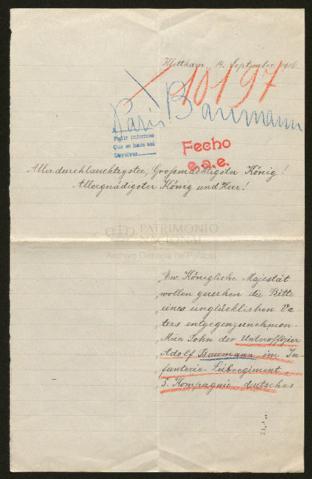 Mettham, 14. September 1916.
10197
Paris Baumann
Pedir informes
Que se haga así
Devolver
Fecho
e.a.e.
Allerdurchlauchtigster, Großmächtigster König!
Allergnädigster König und Herr!
PATRIMONIO
NACIONAL
Archivo General de Palacio
Ew. Königliche Majestät
wollen geruhen die Bitte
eines unglücklichen Va-
ters entgegenzunehmen.
Mein Sohn der Unteroffizier
Adolf Baumann im In-
fanterie Leibregiment
3. Kompagnie deutsches